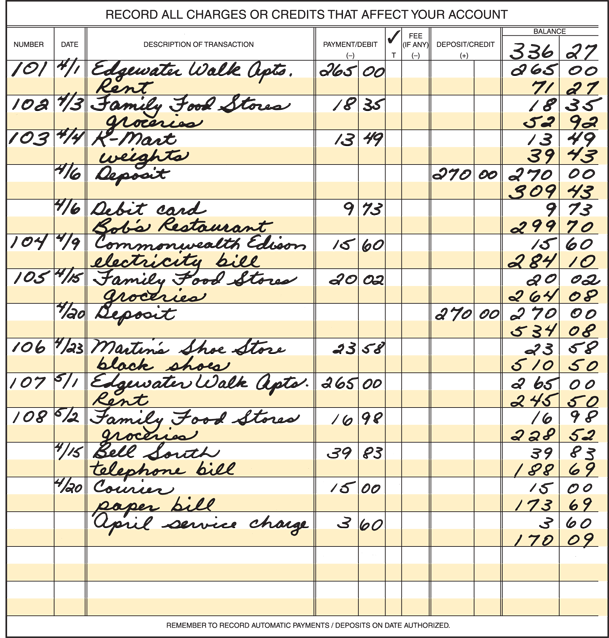 RECORD ALL CHARGES OR CREDITS THAT AFFECT YOUR ACCOUNT
NUMBER DATE DESCRIPTION OF TRANSACTION PAYMENT/DEBIT (–) ✓ T FEE (IF ANY) (–) DEPOSIT/CREDIT (+) BALANCE
336 27
101 4/1 Edgewater Walk Apts. 265 00 265 00
Rent 71 27
102 4/3 Family Food Stores 18 35 18 35
groceries 52 92
103 4/4 K-Mart 13 49 13 49
weights 39 43
4/6 Deposit 270 00 270 00
309 43
4/6 Debit card 9 73 9 73
Bob's Restaurant 299 70
104 4/9 Commonwealth Edison 15 60 15 60
electricity bill 284 10
105 4/15 Family Food Stores 20 02 20 02
groceries 264 08
4/20 Deposit 270 00 270 00
534 08
106 4/23 Martin's Shoe Store 23 58 23 58
black shoes 510 50
107 5/1 Edgewater Walk Apts. 265 00 265 00
Rent 245 50
108 5/2 Family Food Stores 16 98 16 98
groceries 228 52
4/15 Bell South 39 83 39 83
telephone bill 188 69
4/20 Courier 15 00 15 00
paper bill 173 69
April service charge 3 60 3 60
170 09
REMEMBER TO RECORD AUTOMATIC PAYMENTS / DEPOSITS ON DATE AUTHORIZED.